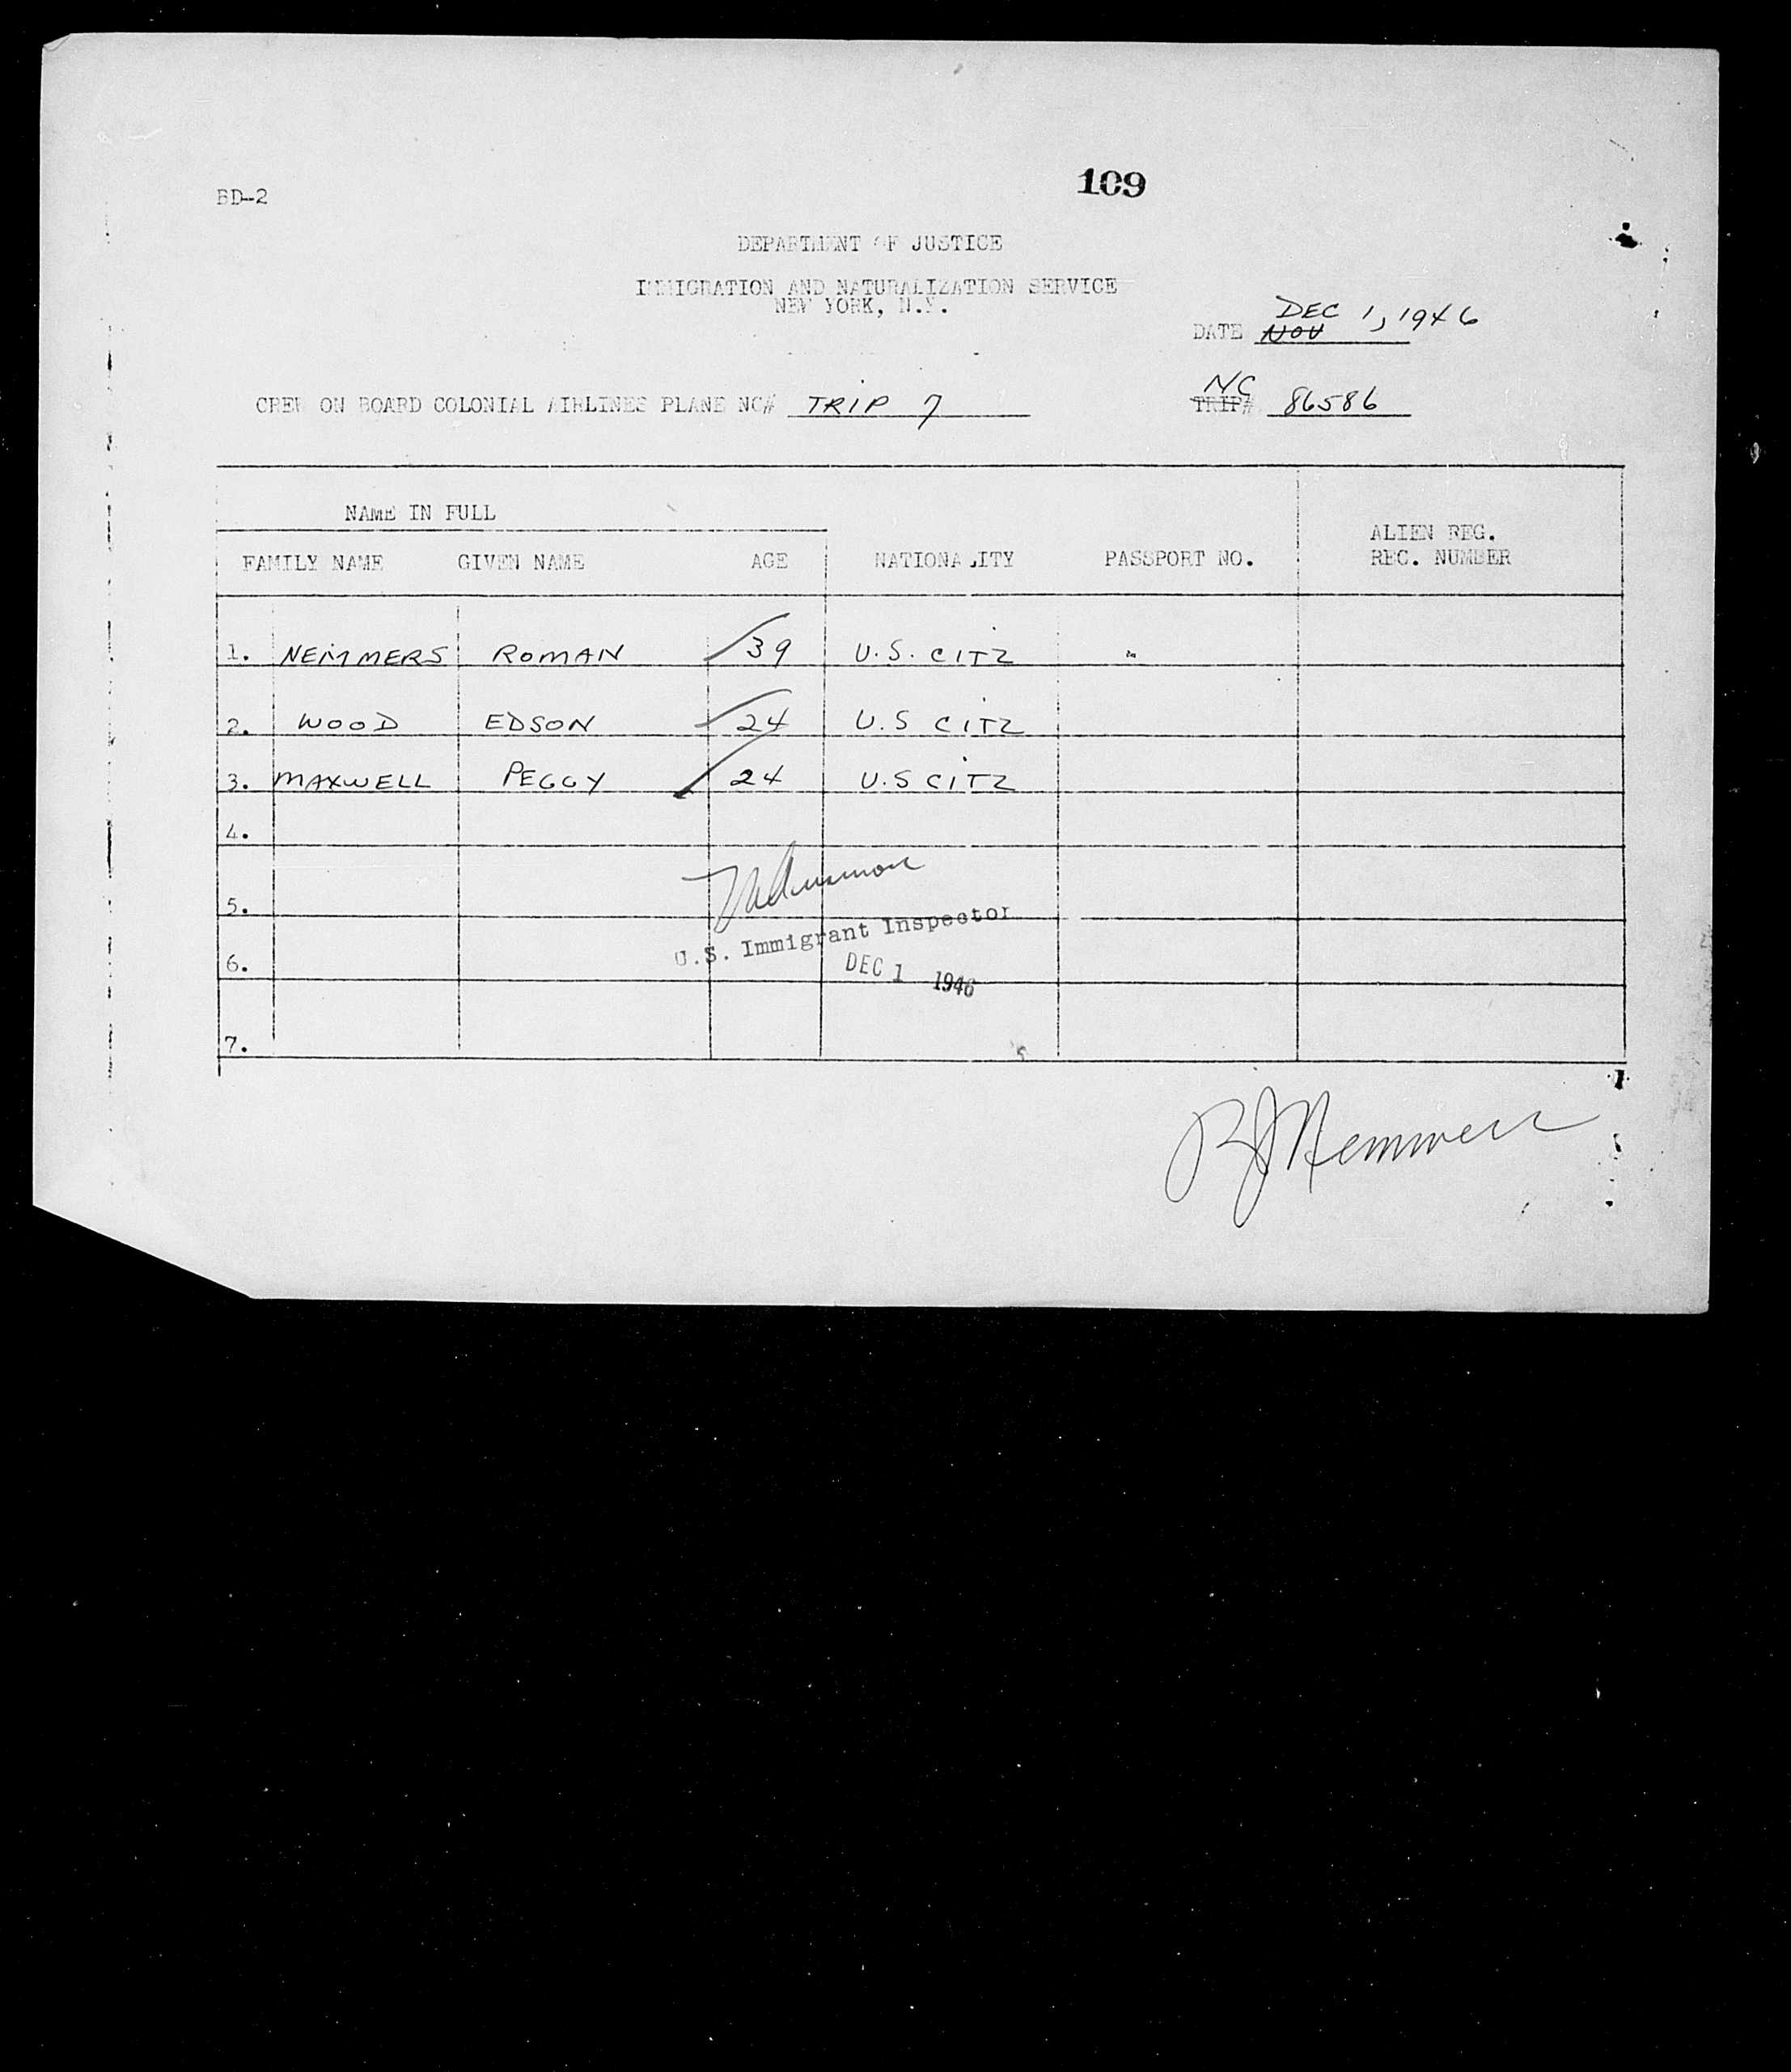 109
BD-2
DEPARTMENT OF JUSTICE
IMMIGRATION AND NATURALIZATION SERVICE
NEW YORK, N.Y.
DEC 1, 1946
DATE NOV
NC
CREW ON BOARD COLONIAL AIRLINES PLANE NC# TRIP 7 TRIP# 86586
NAME IN FULL
ALIEN REG.
FAMILY NAME GIVEN NAME AGE NATIONALITY PASSPORT NO. REC. NUMBER
1. NEMMERS ROMAN 39 U.S. CITZ "
2. WOOD EDSON 24 U.S CITZ
3. MAXWELL PEGGY 24 U.S CITZ
4.
5.
U.S. Immigrant Inspector
6.
DEC 1 1946
7.
RJ Nemmers